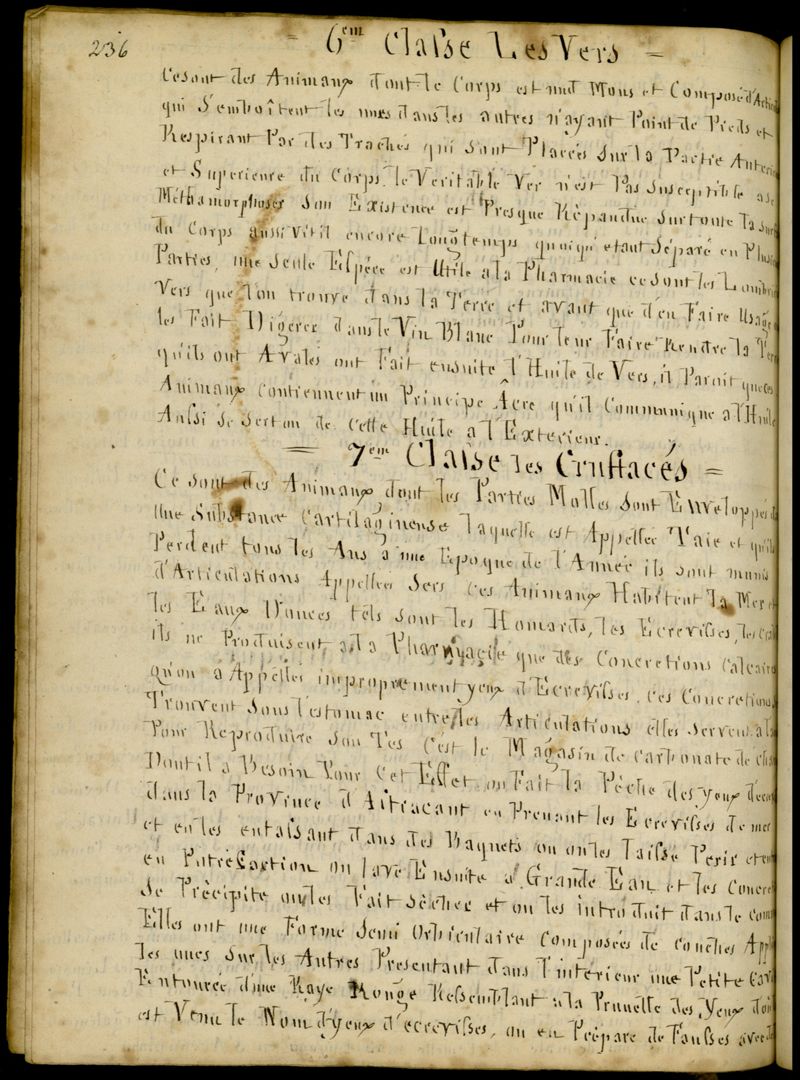 236
= 6em Classe Les Vers =
Ce sont des Animaux dont le Corps est nud Mous et Composé d'Articu
qui S'emboîtent les unes dans les autres n'ayant Point de Pieds et
Respirant Par des Traches qui sont Placées sur la Partie Anterie
et Superieure du Corps. le Veritable Ver n'est Pas Susceptible a se
Methamorphoser Son Existence est Presque Répandue sur toute la Surf
du Corps aussi vit il encore longtemps quoiqu' etant Séparé en Plusie
Parties, une Seule Espéce est Utile a la Pharmacie ce sont les Lombrics
Vers que l'on trouve dans la Terre et avant que d'en Faire Usage
les Fait Digerer dans le Vin Blanc Pour leur Faire Rendre la Terre
qu'ils ont Avalés ont Fait ensuite l'Huile de Vers, il Paroit que ces
Animaux Contiennent un Principe Âcre qu'il Communique a l'Huile
Aussi se sert on de Cette Huile a l'Exterieur.
= 7em Classe les Crustacés =
Ce sont des Animaux dont les Parties Molles sont Enveloppés d
Une Substance Cartilagineuse laquelle est Appellée Taie et qu'ils
Perdent tous les Ans a une Epoque de l'Année ils sont munis
d'Articulations Appellées Sers Ces Animaux Habitent la Mer et
les Eaux Douces tels sont les Homards, les Ecrevisses, les Crab
ils ne Produisent a la Pharmacie que des Concretions Calcaires
qu'on a Appellés improprement yeux d'Ecrevisses. Ces Concretions
Trouvent sous l'estomac entre les Articulations elles servent a l'a
Pour Reproduire Son Tes C'est le Magasin de Carbonate de Chau
Dont il a Besoin Pour Cet Effet, on Fait la Pêche des yeux d'ecre
dans la Province d'Astracant en Prenant les Ecrevisses de mer
et en les entaissant dans des Baquets ou on les laisse Perir et ent
en Putrefaction on lave Ensuite a Grande Eau et les Concret
Se Précipite on les Fait Sécher et on les introduit dans le Comm
Elles ont une Forme Semi Orbiculaire Composées de Couches Appli
les unes Sur les Autres Presentant dans l'intérieur une Petite Cavi
Entourée d'une Raye Rouge Ressemblant a la Prunelle des yeux d'où
est Venu le Nom d'yeux d'ecrevisses, on en Prépare de Fausses avec de